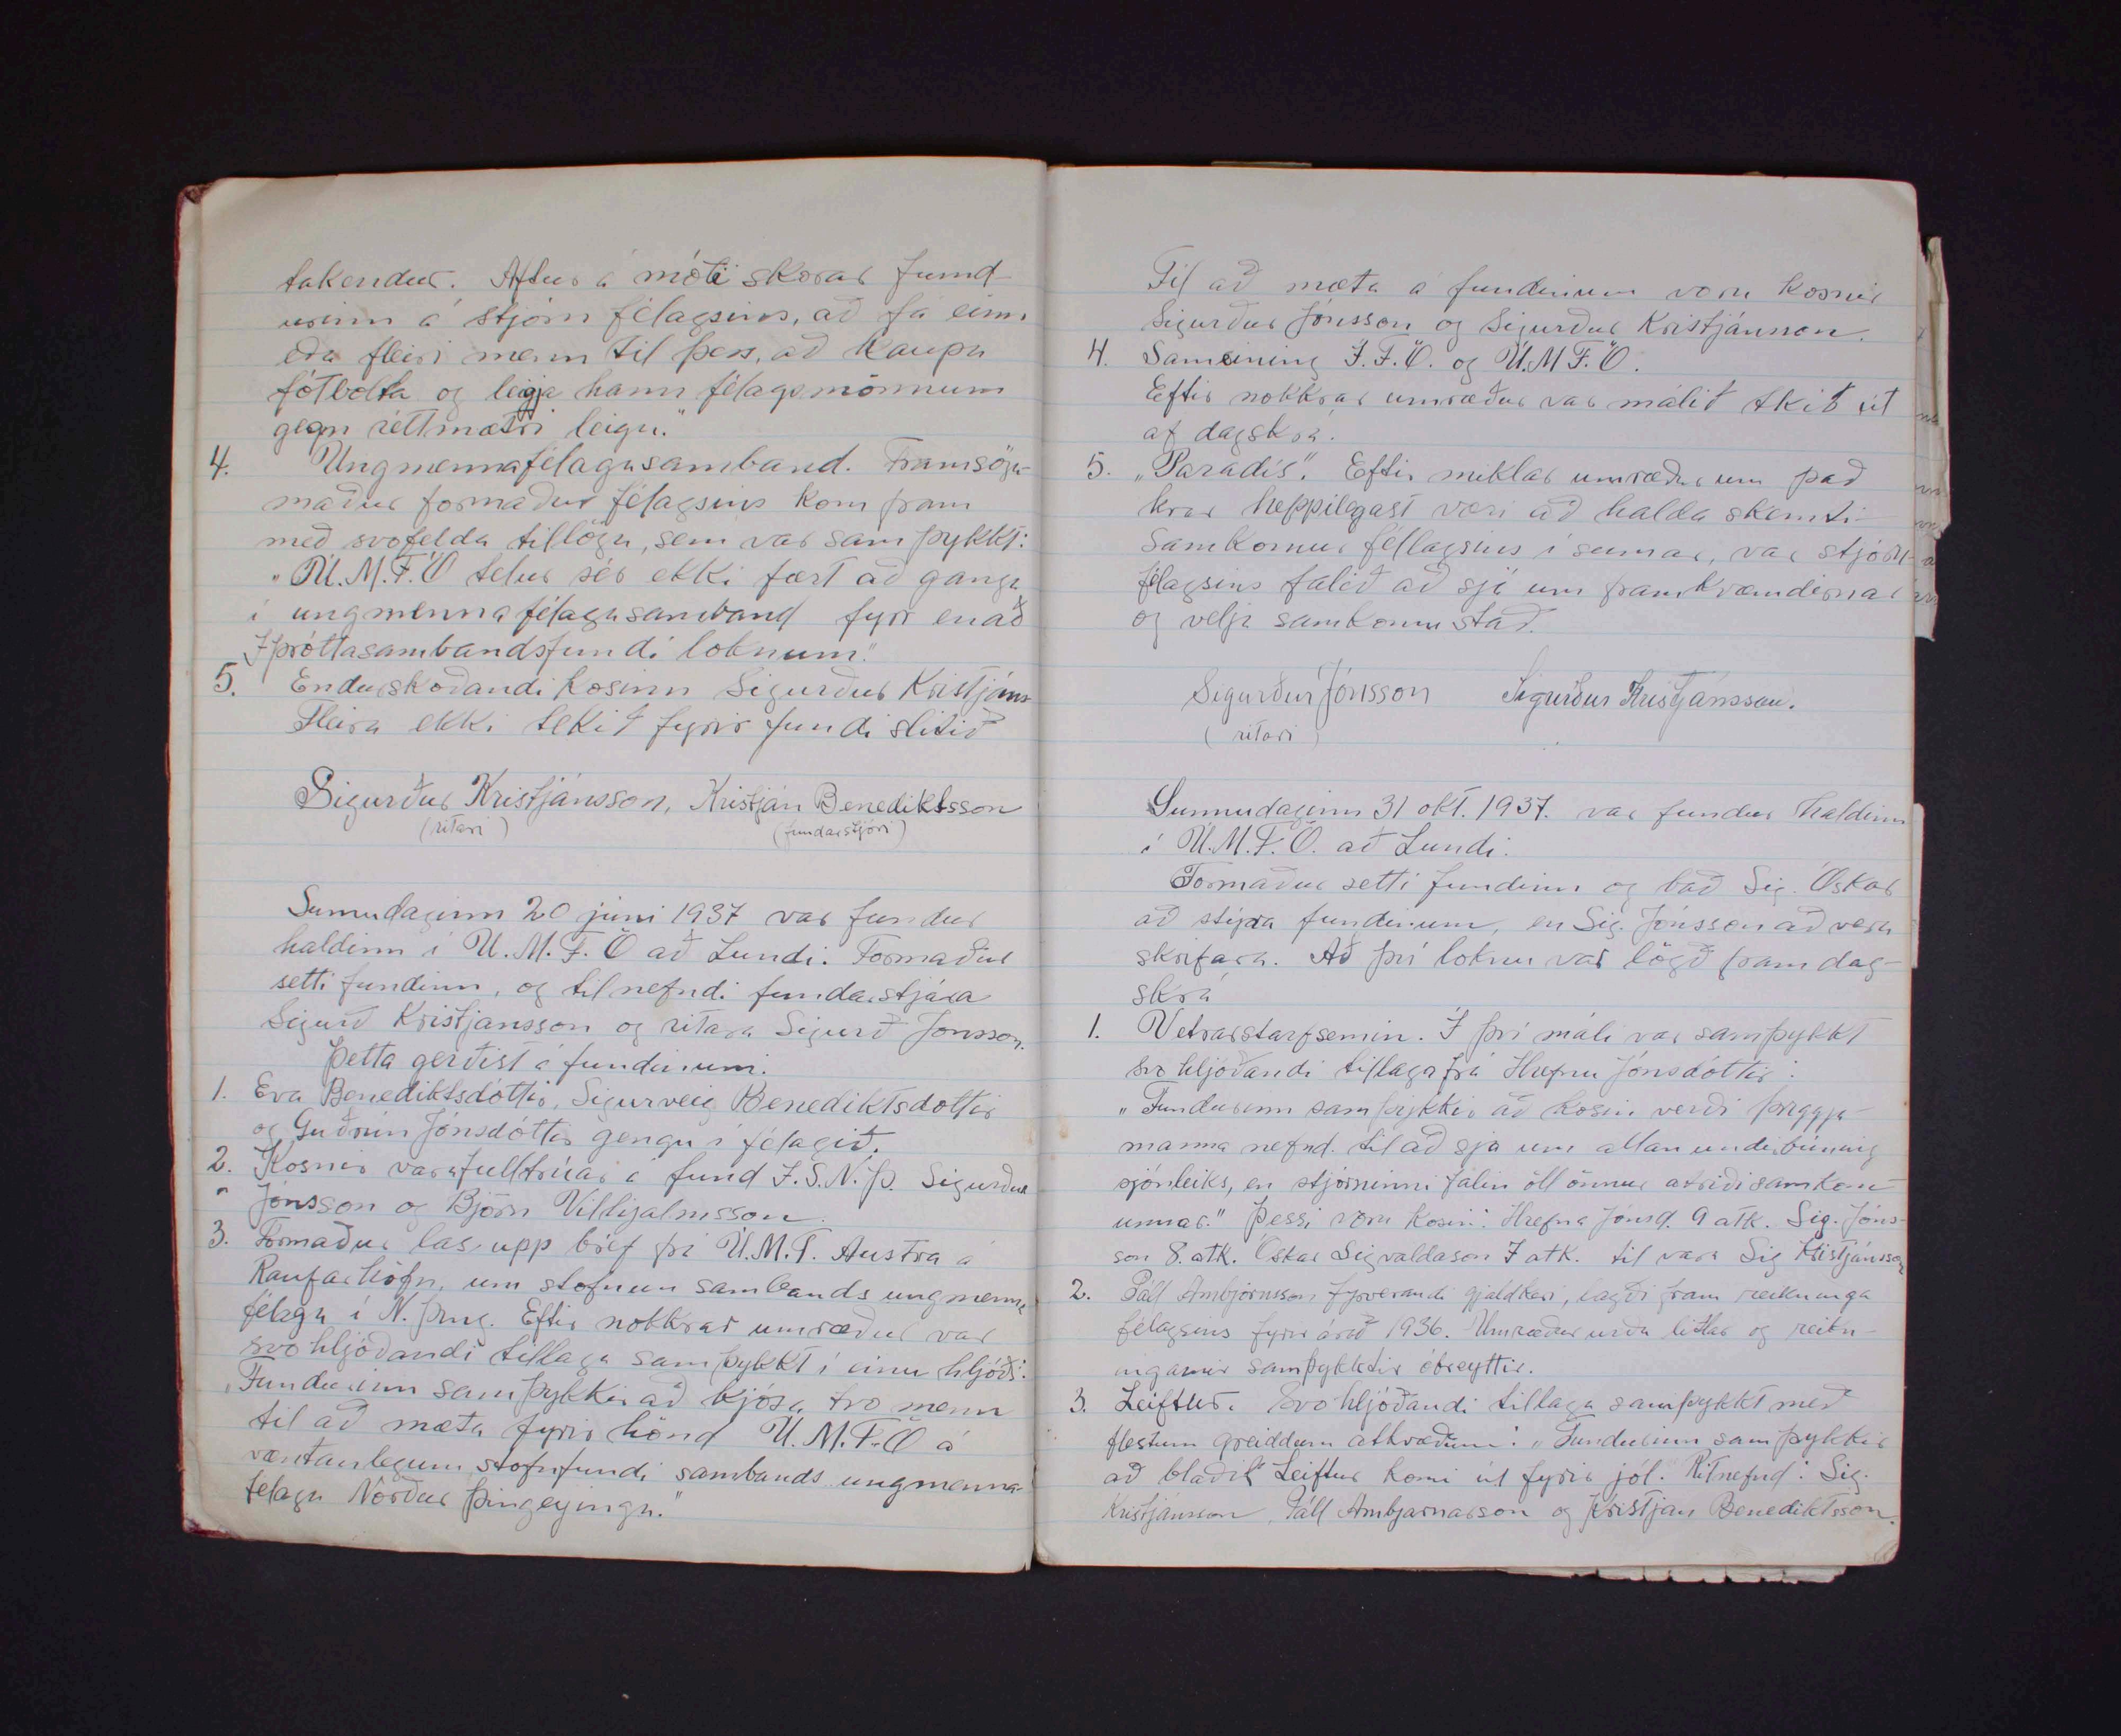 takendur. Aftur á móti skorar fund-
urinn á stjórn félagsins, að fá einn
eða fleiri menn til þess, að kaupa
fótbolta og leigja hann félagsmönnum
gegn réttmætri leigu."
4. Ungmennafélagasamband. Framsögu-
maður formaður félagsins kom fram
með svofelda tillögu, sem var samþykkt:
"U.M.F.Ö telur sér ekki fært að ganga
í ungmennafélagasamband fyrr en að
Íþróttasambandsfundi loknum."
5. Endurskoðandi kosinn Sigurður Kristjáns
Fleira ekki tekið fyrir fundi slitið
Sigurður Kristjánsson, Kristján Benediktsson
(ritari) (fundarstjóri)
Sunnudaginn 20 júni 1937 var fundur
haldinn í U.M.F.Ö að Lundi. Formaður
setti fundinn, og tilnefndi fundarstjóra
Sigurð Kristjansson og ritara Sigurð Jónsson.
Þetta gerðist á fundinum.
1. Eva Benediktsdóttir, Sigurveig Benediktsdottir
og Guðrún Jónsdóttir gengu í félagið.
2. Kosnir varafulltrúar á fund Í.S.N.Þ. Sigurður
Jónsson og Björn Vilhjalmsson.
3. Formaður las upp bréf frá U.M.F. Austra á
Raufarhöfn, um stofnun sambands ungmenna
félaga í N. Þing. Eftir nokkrar umræður var
svohljóðandi tillaga samþykkt í einu hljóði:
"Fundurinn samþykkir að kjósa tvo menn
til að mæta fyrir hönd U.M.F.Ö á
væntanlegum stofnfundi sambands ungmenna-
félaga Norður Þingeyinga."
Til að mæta á fundinum voru kosnir
Sigurður Jónsson og Sigurður Kristjánsson.
4. Sameining Í.F.Ö. og U.M.F.Ö.
Eftir nokkrar umræður var málið tkið út
af dagskrá.
5. "Paradís". Eftir miklar umræður um það
hvar heppilegast væri að halda skemti-
samkomur féllagsins í sumar, var stjórn-
félagsins falið að sjá um framkvæmdirnar
og velja samkomustað.
Sigurður Jónsson Sigurður Kristjánsson.
(ritari)
Sunnudaginn 31 okt. 1937. var fundur haldinn
í U.M.F.Ö. að Lundi.
Formaður setti fundinn og bað Sig. Óskar
að stýra fundinum, en Sig. Jónsson að vera
skrifara. Að því loknu var lögð fram dag-
skrá
1. Vetrarstarfsemin. Í því máli var samþykkt
svohljóðandi tillaga frá Hrefnu Jónsdóttir:
"Fundurinn samþykkir að kosin verði þriggja-
manna nefnd. til að sjá um allan undirbúning
sjónleiks, en stjórninni falin öll önnur atriði samkom-
unnar." Þessi voru kosin: Hrefna Jónsd. 9 atk. Sig. Jóns-
son 8. atk. Óskar Sigvaldason 7 atk. til vara Sig Kristjánsson
2. Páll Arnbjörnsson, fyrverandi gjaldkeri, lagði fram reikninga
félagsins fyrir árið 1936. Umræður urðu litlar og reikn-
ingarnir samþykktir óbreyttir.
3. Leiftur. Svohljóðandi tillaga samþykkt með
flestum greiddum atkvæðum: "Fundurinn samþykkir
að blaðið Leiftur komi út fyrir jól. Ritnefnd: Sig.
Kristjánsson, Páll Arnbjarnarson og Kristján Benediktsson.